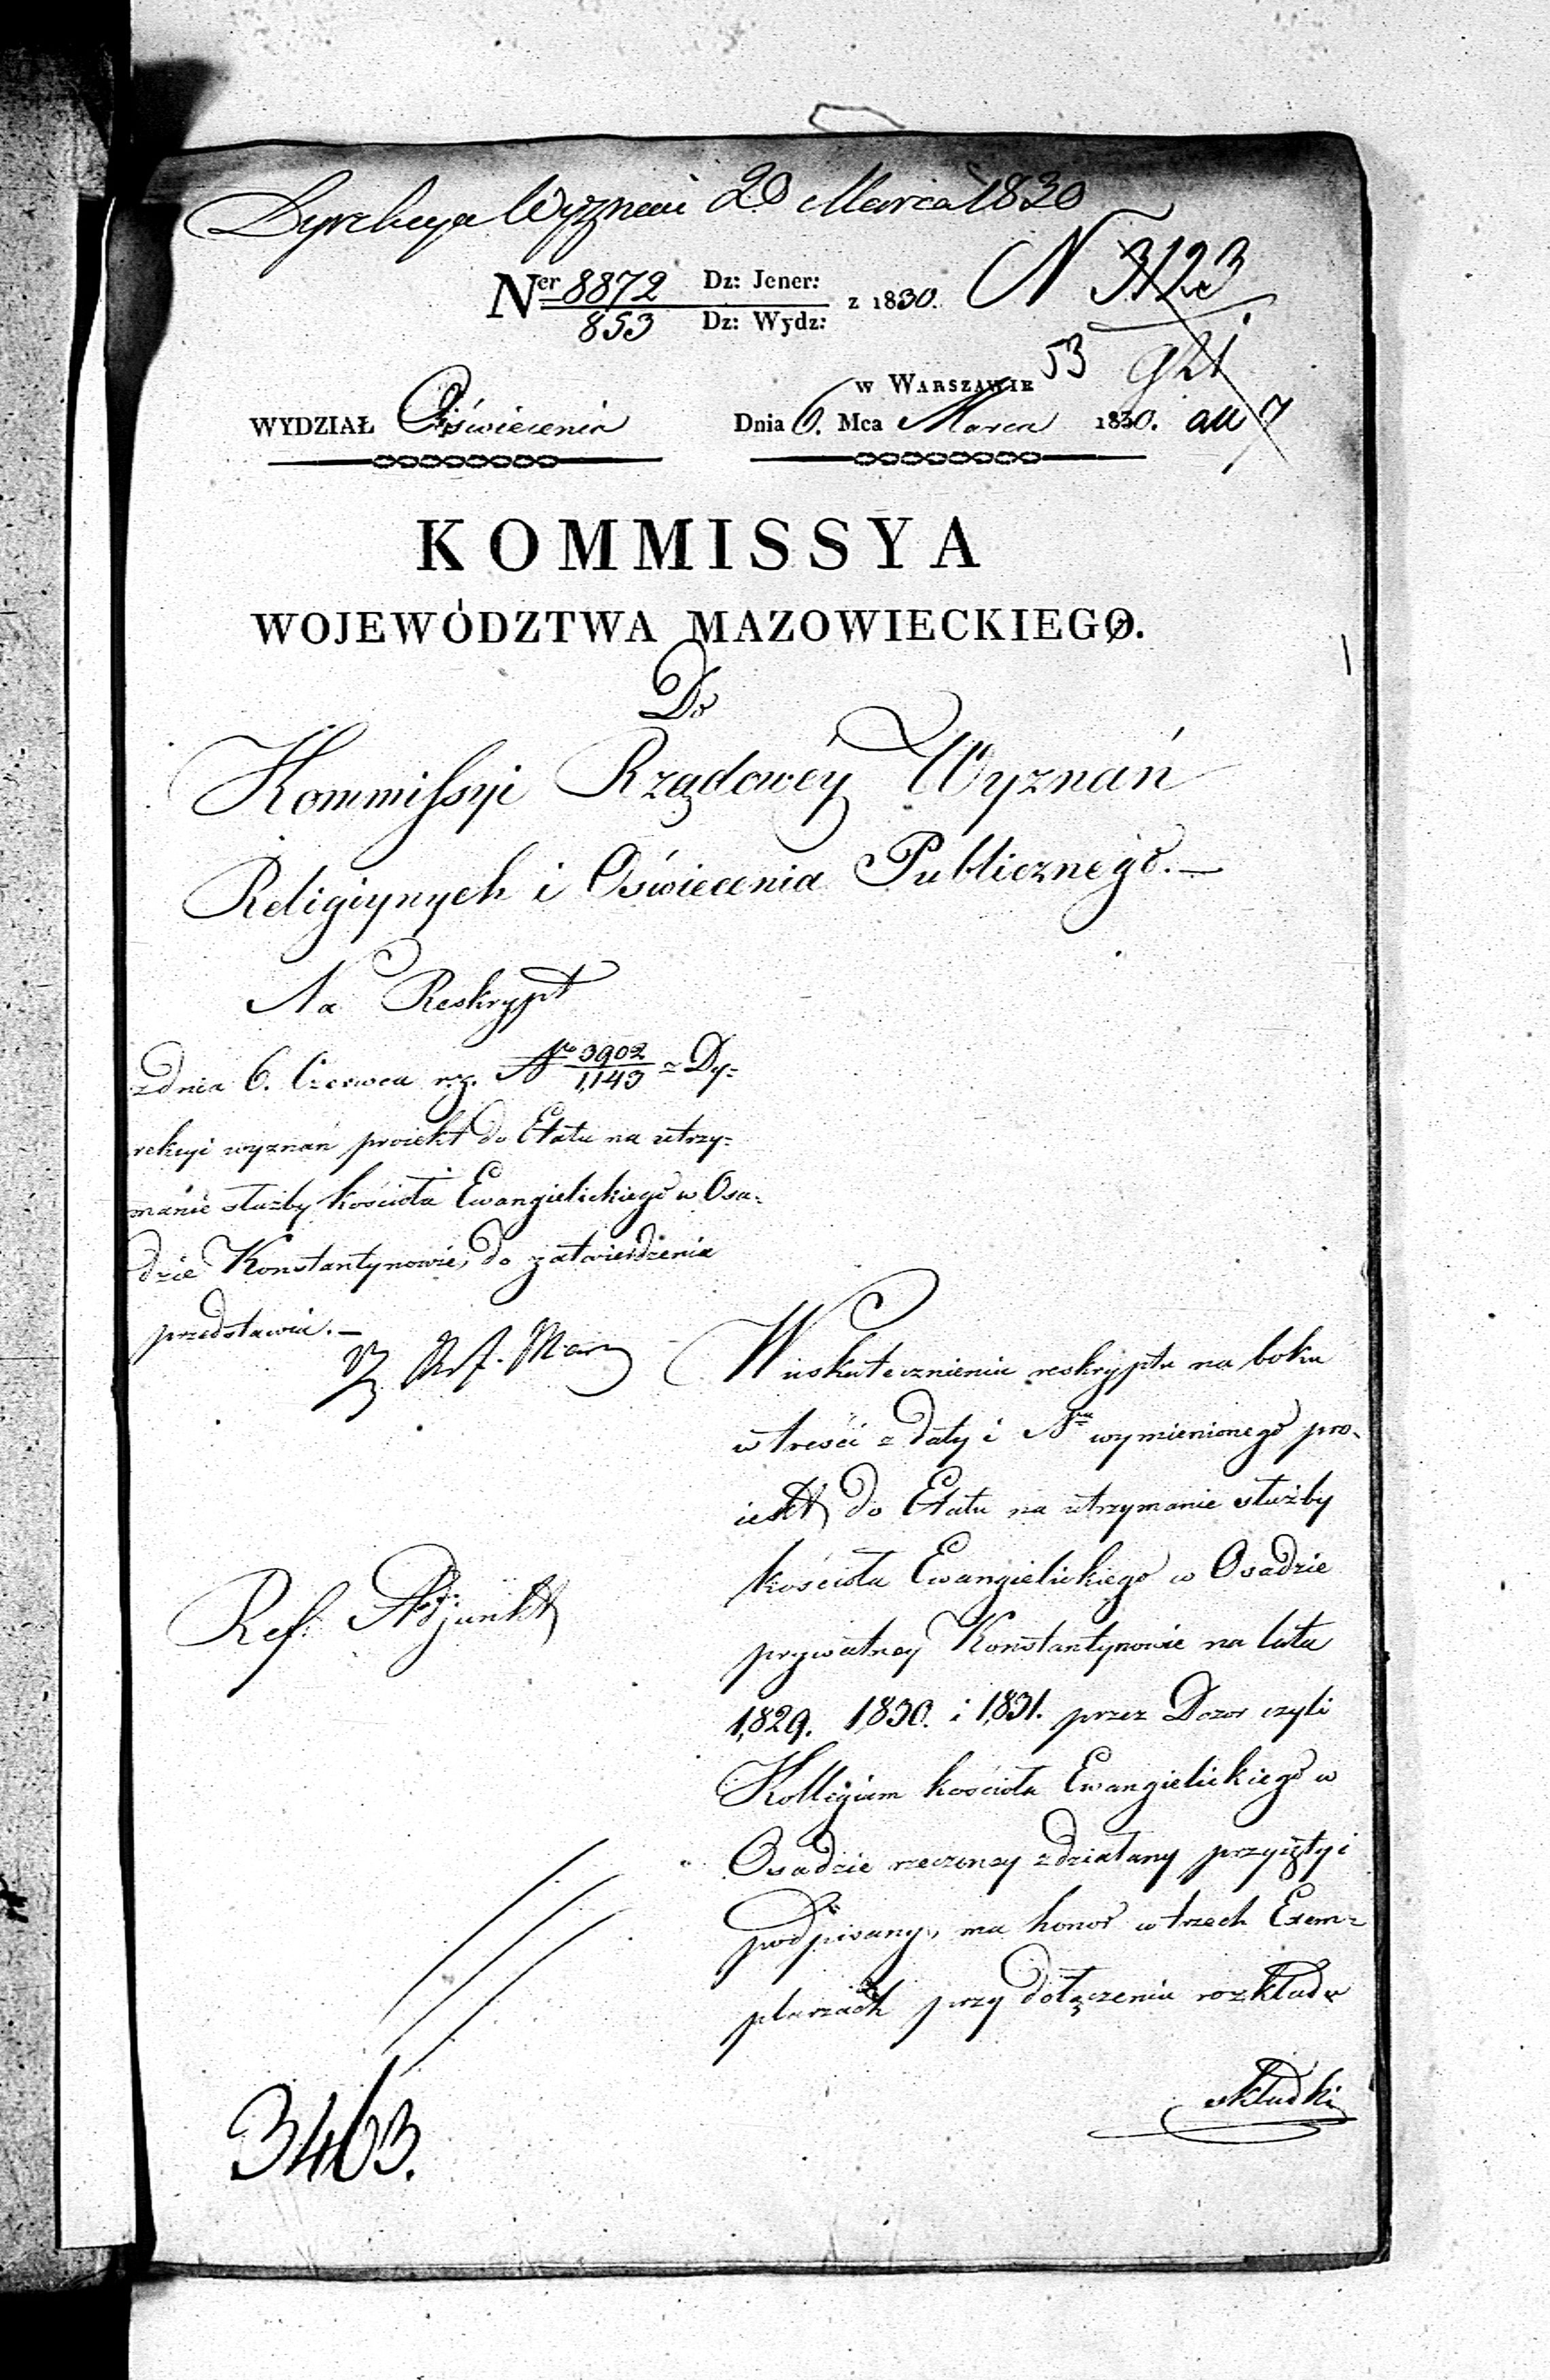 Dyrekcya Wyznań 20 Marca 1830
Ner 8872 Dz: Jener: z 1830. N 3123
853 Dz: Wydz:
53 921
w Warszawie
WYDZIAŁ Oświecenia Dnia 6. Mca Marca 1830.
KOMMISSYA
WOJEWÓDZTWA MAZOWIECKIEGO.
Do
Kommissyi Rządowéy Wyznań
Religiynych i Oświecenia Publicznego. —
Na Reskrypt
z dnia 6. Czerwca r.z. Nro 3902/1,143 = Dy=
rekcyi wyznań proiekt do Etatu na utrzy=
manie służby kościoła Ewangielickiego w Osa=
dzie Konstantynowie, do zatwierdzenia
przedstawia. —
W uskutecznieniu reskryptu na boku
w treści z daty i Nru wymienionego pro-
iekt do Etatu na utrzymanie służby
kościoła Ewangielickiego w Osadzie
prywatney Konstantynowie na lata
1,829. 1,830. i 1,831. przez Dozor czyli
Kollegium kościoła Ewangielickiego w
Osadzie rzeczoney zdziałany przyięty i
podpisany, ma honor w trzech Exem=
plarzach przy dołączeniu rozkładu
składki
Ref: Adjunkt
3463.